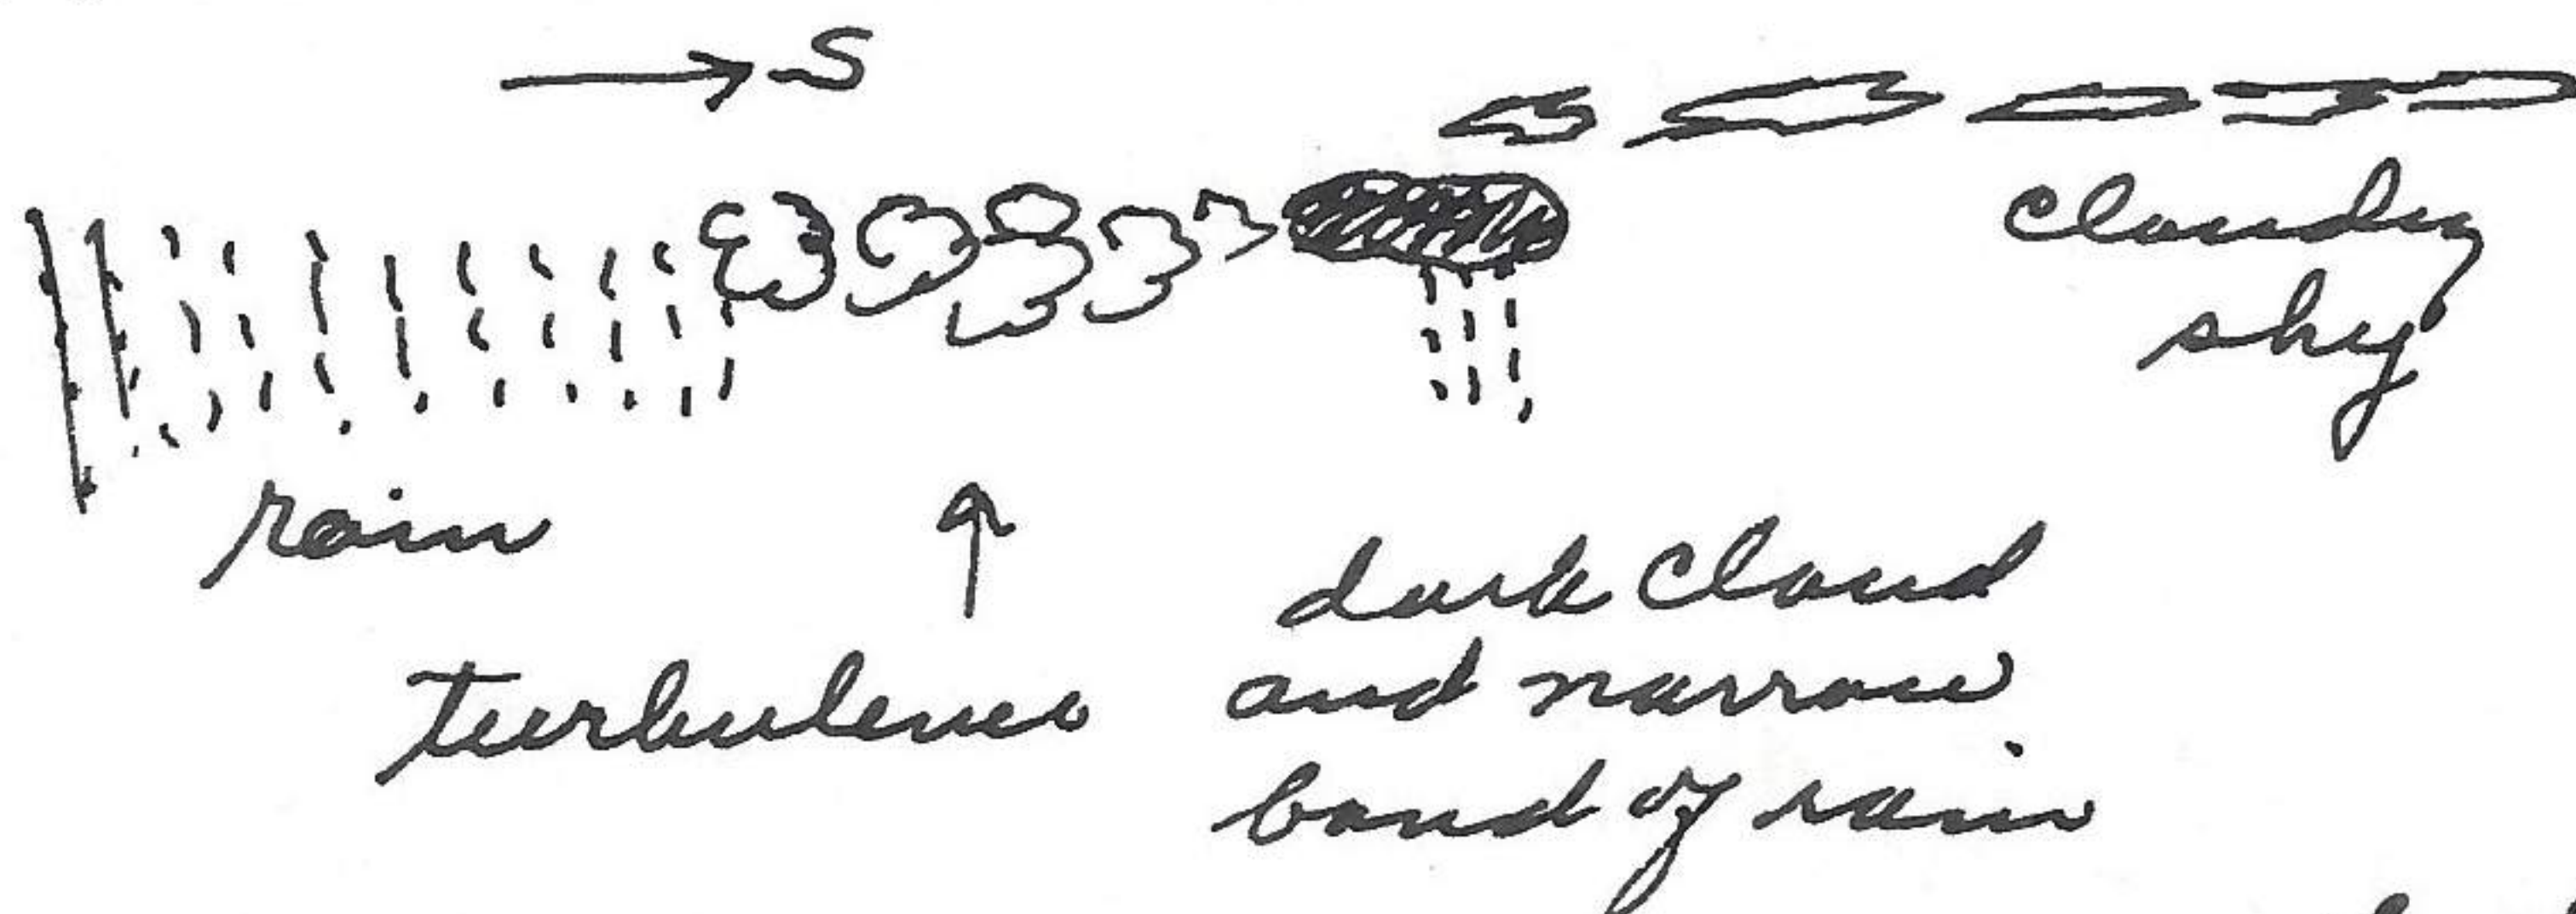 S
cloudy
sky
rain
turbulence
dark cloud
and narrow
band of rain